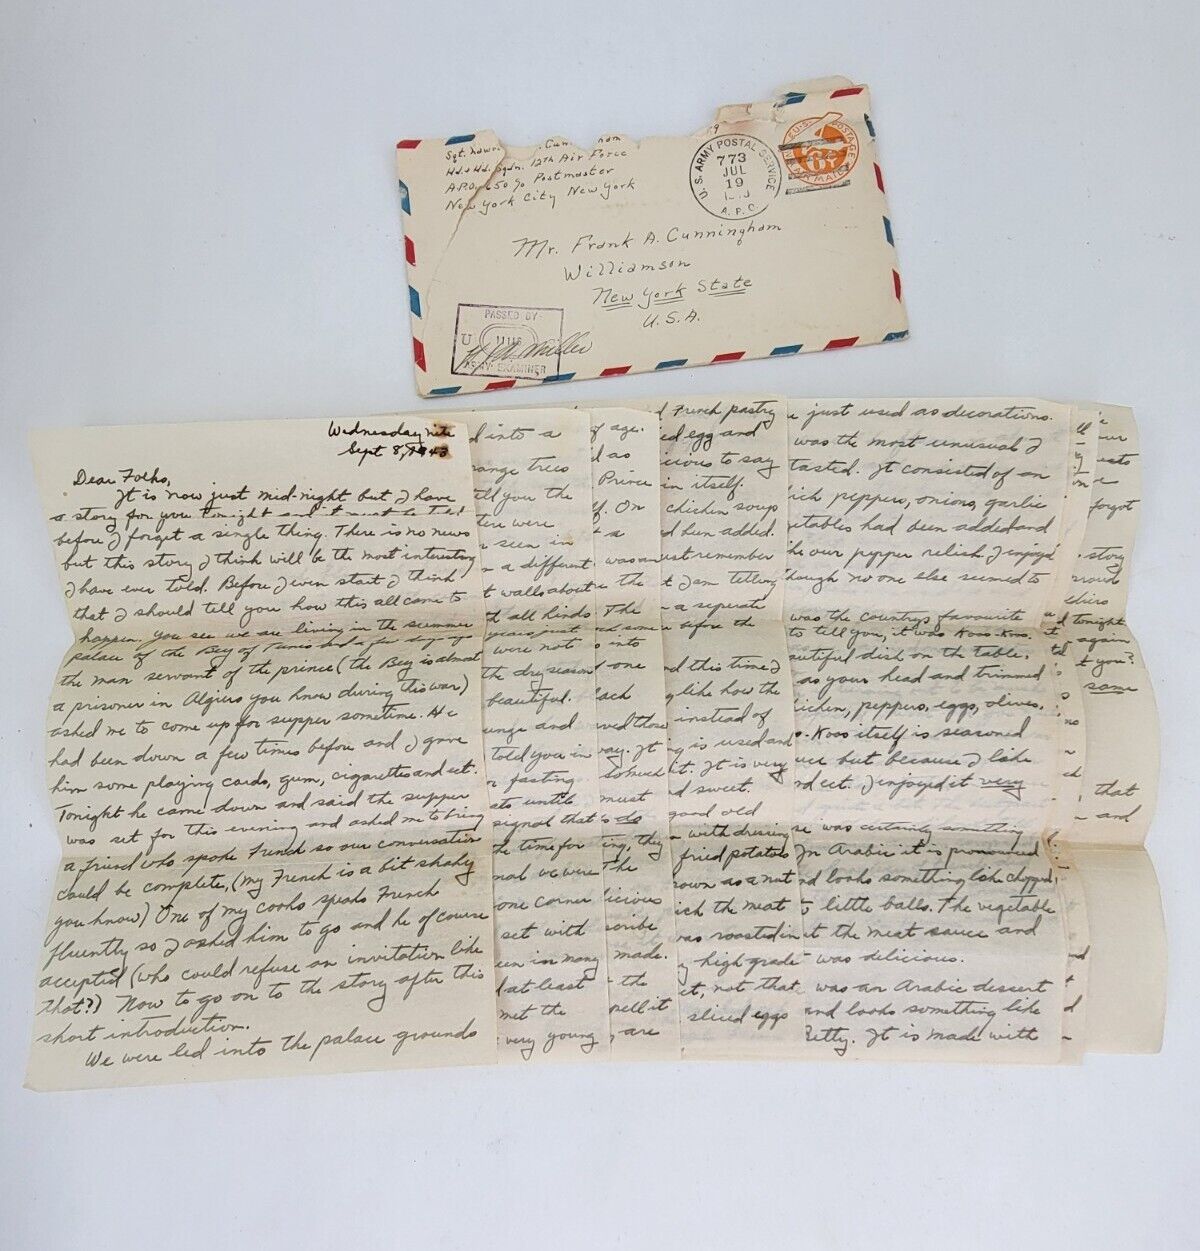 Sgt.
Hd. & Hd. Sqdn. 12th Air Force
A.P.O. 650 % Postmaster
New York City New York
U.S. ARMY POSTAL SERVICE
773
JUL
19
A.P.C.
U.S. POSTAGE
6¢
AIR MAIL
Mr. Frank A. Cunningham
Williamson
New York State
U.S.A.
PASSED BY
U
ARMY EXAMINER
Wednesday nite
Sept 8, 1943
Dear Folks,
It is now just mid-night but I have
a story for you tonight and it must be told
before I forget a single thing. There is no news
but this story I think will be the most interesting
I have ever told. Before I even start I think
that I should tell you how this all came to
happen. you see we are living in the summer
palace of the Bey of Tunis and
the man servant of the prince (the Bey is almost
a prisoner in Algiers you know during this war)
asked me to come up for supper sometime. He
had been down a few times before and I gave
him some playing cards, gum, cigarettes and ect.
Tonight he came down and said the supper
was set for this evening and asked me to bring
a friend who spoke French so our conversation
could be complete, (my French is a bit shaky
you know) One of my cooks speaks French
fluently so I asked him to go and he of course
accepted (who could refuse an invitation like
that?) Now to go on to the story after this
short introduction.
We were led into the palace grounds
d into a
range trees
tell you the
here were
seen in
a different
t walls about
th all kinds
years past
were not
the dry season
beautiful.
unge and
told you in
r fasting
ats until
signal that
the time for
nal we were
one corner
set with
een in many
d at least
met the
very young
of age.
d as
Prince
f. On
a
was an
e the
The
nd some
s into
d one
lack
rved those
way. It
so much
must
s do
ting, they
The
licious
scribe
made.
the
mell it
, are
d French pastry
ied egg and
icious to say
in itself.
chicken soup
d been added.
ust remember
t I am telling
n a seperate
e before the
nd this time I
g like how the
instead of
g is used and
it. It is very
d sweet.
good old
n with dressing
fried potatoes
rown as a nut
ich the meat
was roasted in
y high grade
et, not that
sliced eggs
e just used as decorations.
was the most unusual I
tasted. It consisted of an
ick peppers, onions, garlic
getables had been added and
ke our pepper relish. I enjoyed
hough no one else seemed to
was the countrys favourite
to tell you, it was Koos-Koos.
autiful dish on the table,
as your head and trimmed
hicken, peppers, eggs, olives,
s-Koos itself is seasoned
uce but because I like
nd ect. I enjoyed it very
se was certainly something
In Arabic it is pronounced
nd looks something like chopped,
little balls. The vegetable
t the meat sauce and
was delicious.
was an Arabic dessert
and looks something like
etty. It is made with
forgot
story
tonight
again
t you?
same
that
and